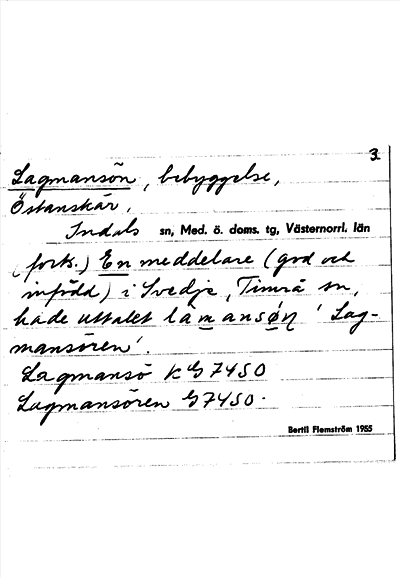 3.
Lagmansön, bebyggelse,
Östanskär,
Indals sn, Med. ö. doms. tg, Västernorrl. län
(forts.) En meddelare (god och
infödd) i Svedje, Timrå sn,
hade uttalet 'Lag-
mansören'.
Lagmansö K G7450
Lagmansören G7450.
Bertil Flemström 1955